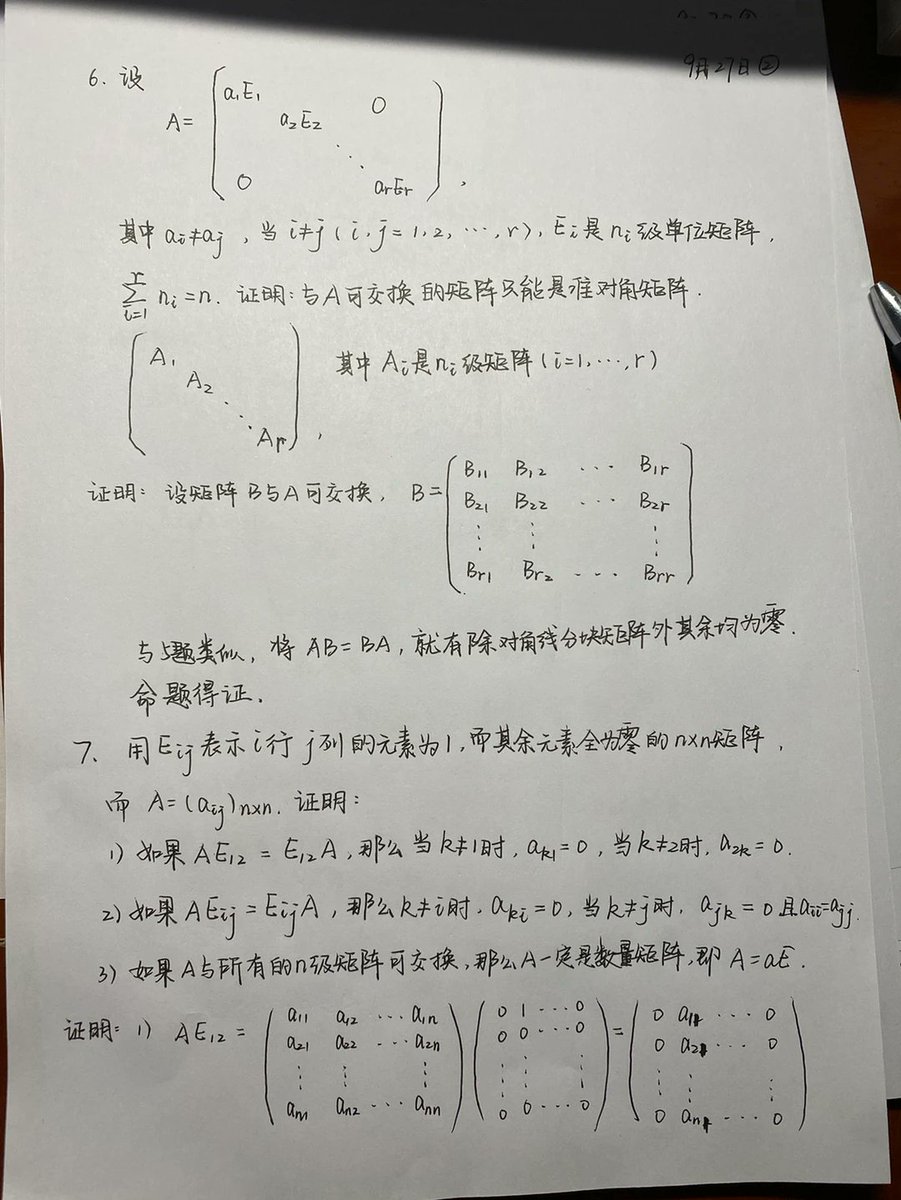 9月27日②
6. 设
A= ( a₁E₁ 0
a₂E₂
⋱
0 aᵣEᵣ ) ,
其中 aᵢ≠aⱼ ,当 i≠j ( i, j = 1, 2, ⋯, r ), Eᵢ是 nᵢ级单位矩阵,
∑ᵢ₌₁ʳ nᵢ=n. 证明:与A可交换的矩阵只能是准对角矩阵.
( A₁
A₂
⋱
Aᵣ ) , 其中 Aᵢ是nᵢ级矩阵 ( i=1, ⋯, r )
证明: 设矩阵B与A可交换, B= ( B₁₁ B₁₂ ⋯ B₁ᵣ
B₂₁ B₂₂ ⋯ B₂ᵣ
⋮ ⋮ ⋮
Bᵣ₁ Bᵣ₂ ⋯ Bᵣᵣ )
与5题类似, 将 AB=BA, 就有除对角线分块矩阵外其余均为零.
命题得证.
7. 用Eᵢⱼ表示i行j列的元素为1,而其余元素全为零的n×n矩阵,
而 A=(aᵢⱼ)ₙₓₙ. 证明:
1) 如果 AE₁₂ = E₁₂A, 那么当k≠1时, aₖ₁=0, 当k≠2时, a₂ₖ=0.
2) 如果 AEᵢⱼ=EᵢⱼA, 那么k≠i时, aₖᵢ=0, 当k≠j时, aⱼₖ=0 且aᵢᵢ=aⱼⱼ.
3) 如果A与所有的n级矩阵可交换,那么A一定是数量矩阵,即 A=aE.
证明: 1) AE₁₂ = ( a₁₁ a₁₂ ⋯ a₁ₙ ) ( 0 1 ⋯ 0 ) = ( 0 a₁₁ ⋯ 0 )
a₂₁ a₂₂ ⋯ a₂ₙ 0 0 ⋯ 0 0 a₂₁ ⋯ 0
⋮ ⋮ ⋮ ⋮ ⋮ ⋮ ⋮ ⋮ ⋮
aₙ₁ aₙ₂ ⋯ aₙₙ 0 0 ⋯ 0 0 aₙ₁ ⋯ 0